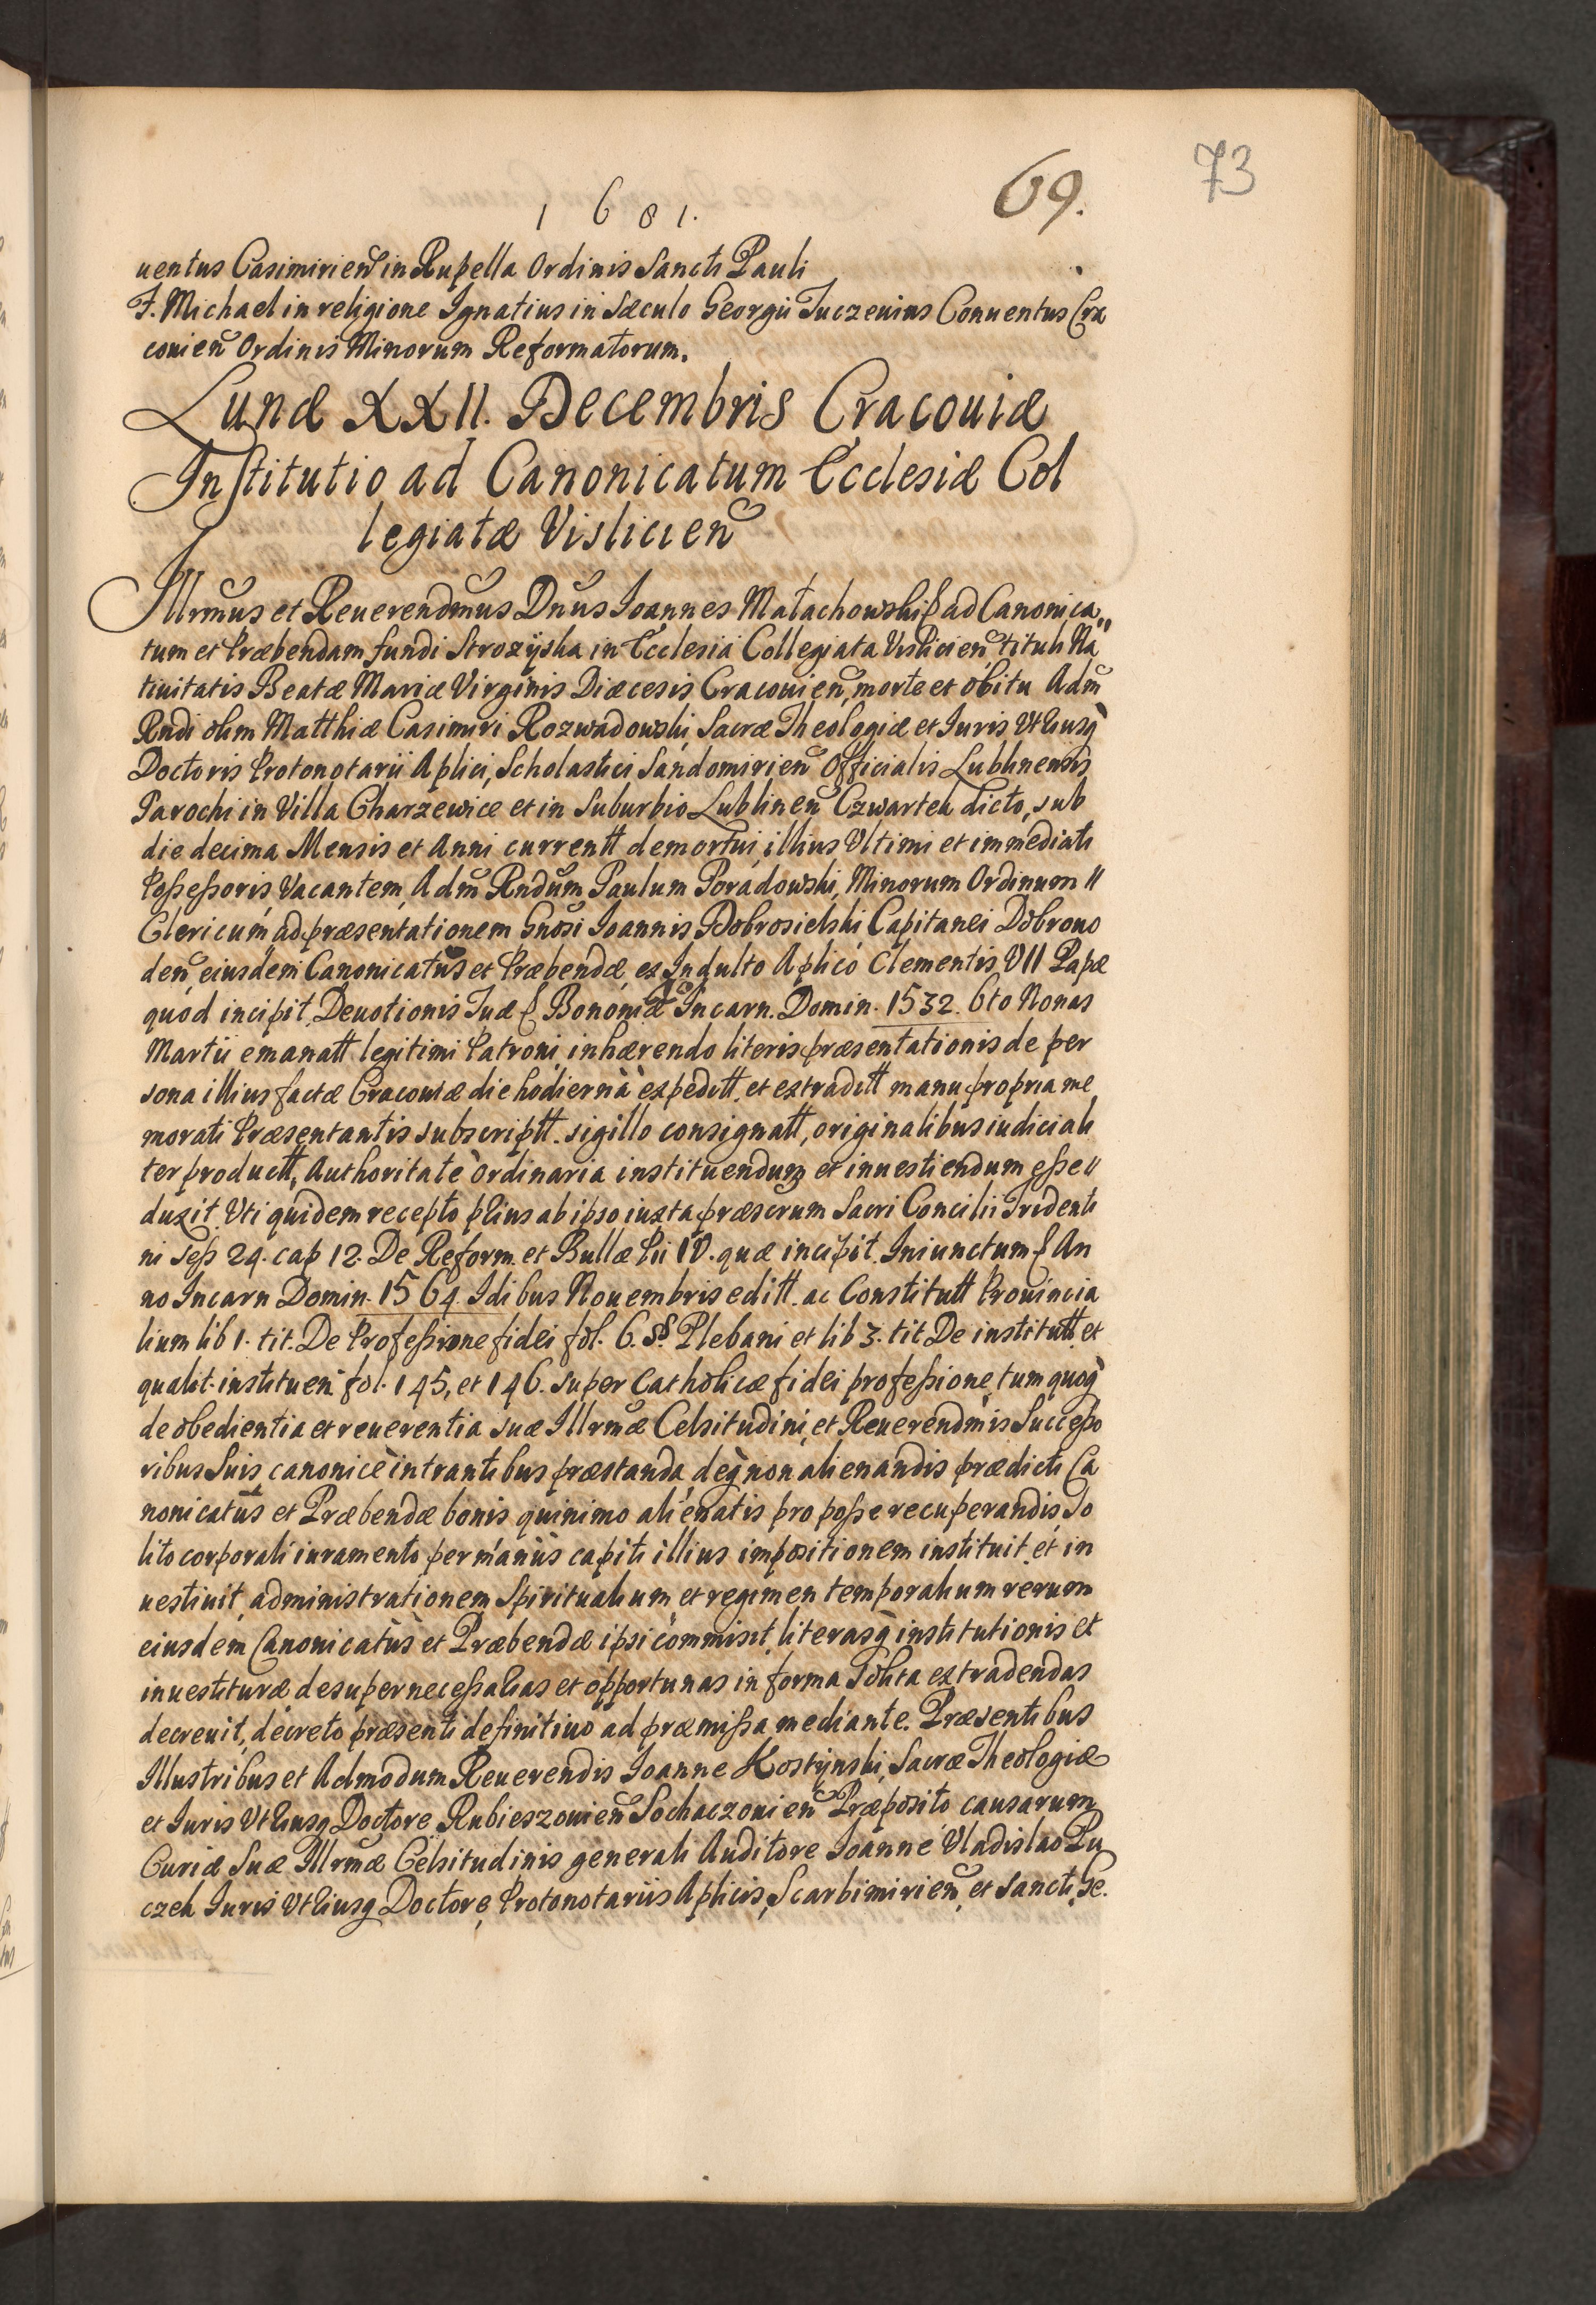 73
69.
1 6 8 1.
uentus Casimirien̄ in Rupella Ordinis Sancti Pauli
F. Michael in religione Ignatius in Sæculo Georgii Juczeuius Conuentus Cra
couien̄ Ordinis Minorum Reformatorum.
Lunæ XXII. Decembris Cracouiæ
Institutio ad Canonicatum Ecclesiæ Col
legiatæ Vislicien̄
Illrmus et Reuerendmus Dnus Ioannes Małachowski ad Canonica„
tum et Præbendam fundi Strozyska in Ecclesia Collegiata Vislicien̄ tituli Na
tiuitatis Beatæ Mariæ Virginis Diæcesis Cracouien̄, morte et obitu Adm̄
Rndi olim Matthiæ Casimiri Rozwadowski Sacræ Theologiæ et Iuris Vtriusq̀
Doctoris Protonotarii Aplici, Scholastici Sandomirien̄ Officialis Lublinensis
Parochi in Villa Charzewice et in Suburbio Lublinen̄ Czwartek dicto, sub
die decima Mensis et Anni currentt demortui, illius Vltimi et immediati
Poßeßoris, Vacantem, Adm̄ Rndum Paulum Poradowski, Minorum Ordinum //
Clericum ad præsentationem Gnosi Ioannis Dobrosielski Capitanei Dobrono
den̄, eiusdem Canonicatus et Præbendæ, ex Indulto Aplico Clementis VII Papæ
quod incipit, Deuotionis Tuæ Bononiæ Ao Incarn. Domin. 1532. 6to Nonas
Martii emanatt legitimi Patroni, inhærendo literis præsentationis de per
sona illius factæ Cracouiæ die hodierna expeditt. et extraditt manu propria me
morati Præsentantis subscriptt. sigillo consignatt, originalibus iudiciali
ter productt, Authoritate ordinaria instituendum et inuestiendum eße //
duxit. Vti quidem recepto prius ab ipso iuxta præscrum Sacri Concilii Tridenti
ni Seß 24. cap 12. De Reform. et Bullæ Pii IV. quæ incipit. Iniunctum An
no Incarn Domin. 1564. Idibus Nouembris editt. ac Constitutt Prouincia
lium lib 1. tit. De Profeßione fidei fol. 6. §§ Plebani et lib 3. tit. De institutt. et
qualit. instituen̄ fol. 145, et 146. super Catholicæ fidei profeßione, tum quoq̀
de obedientia et reuerentia suæ Illrmæ Celsitudini, et Reuerendmis Succeßo
ribus Suis canonicè intrantibus præstanda, deq̀ non alienandis prædicti Ca
nonicatus et Præbendæ bonis quinimo alienatis pro poße recuperandis, So
lito corporali iuramento, per manus capiti illius impositionem instituit et in
uestiuit, administrationem Spiritualium et regimen temporalium rerum
eiusdem Canonicatùs et Præbendæ ipsi commisit, literasq̀ institutionis et
inuestituræ desuper neceßarias et opportunas in forma Solita extradendas
decreuit, decreto præsenti definitiuo ad præmißa mediante. Præsentibus
Illustribus et Admodum Reuerendis Ioanne Kostynski, Sacræ Theologiæ
et Iuris Vtriusq Doctore Rubieszouien̄ Sochaczouien̄ Præposito causarum
Curiæ Suæ Illrmæ Celsitudinis generali Auditore Ioanne Vladislao Pu
czek Iuris Vtriusq Doctore, Protonotariis Aplicis, Scarbimirien̄, et Sancti Ge.